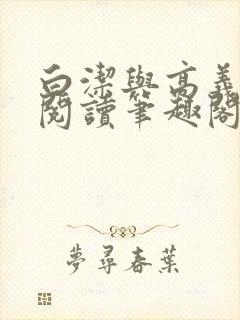 白潔與高義
閱讀筆趣閣
夢尋春葉